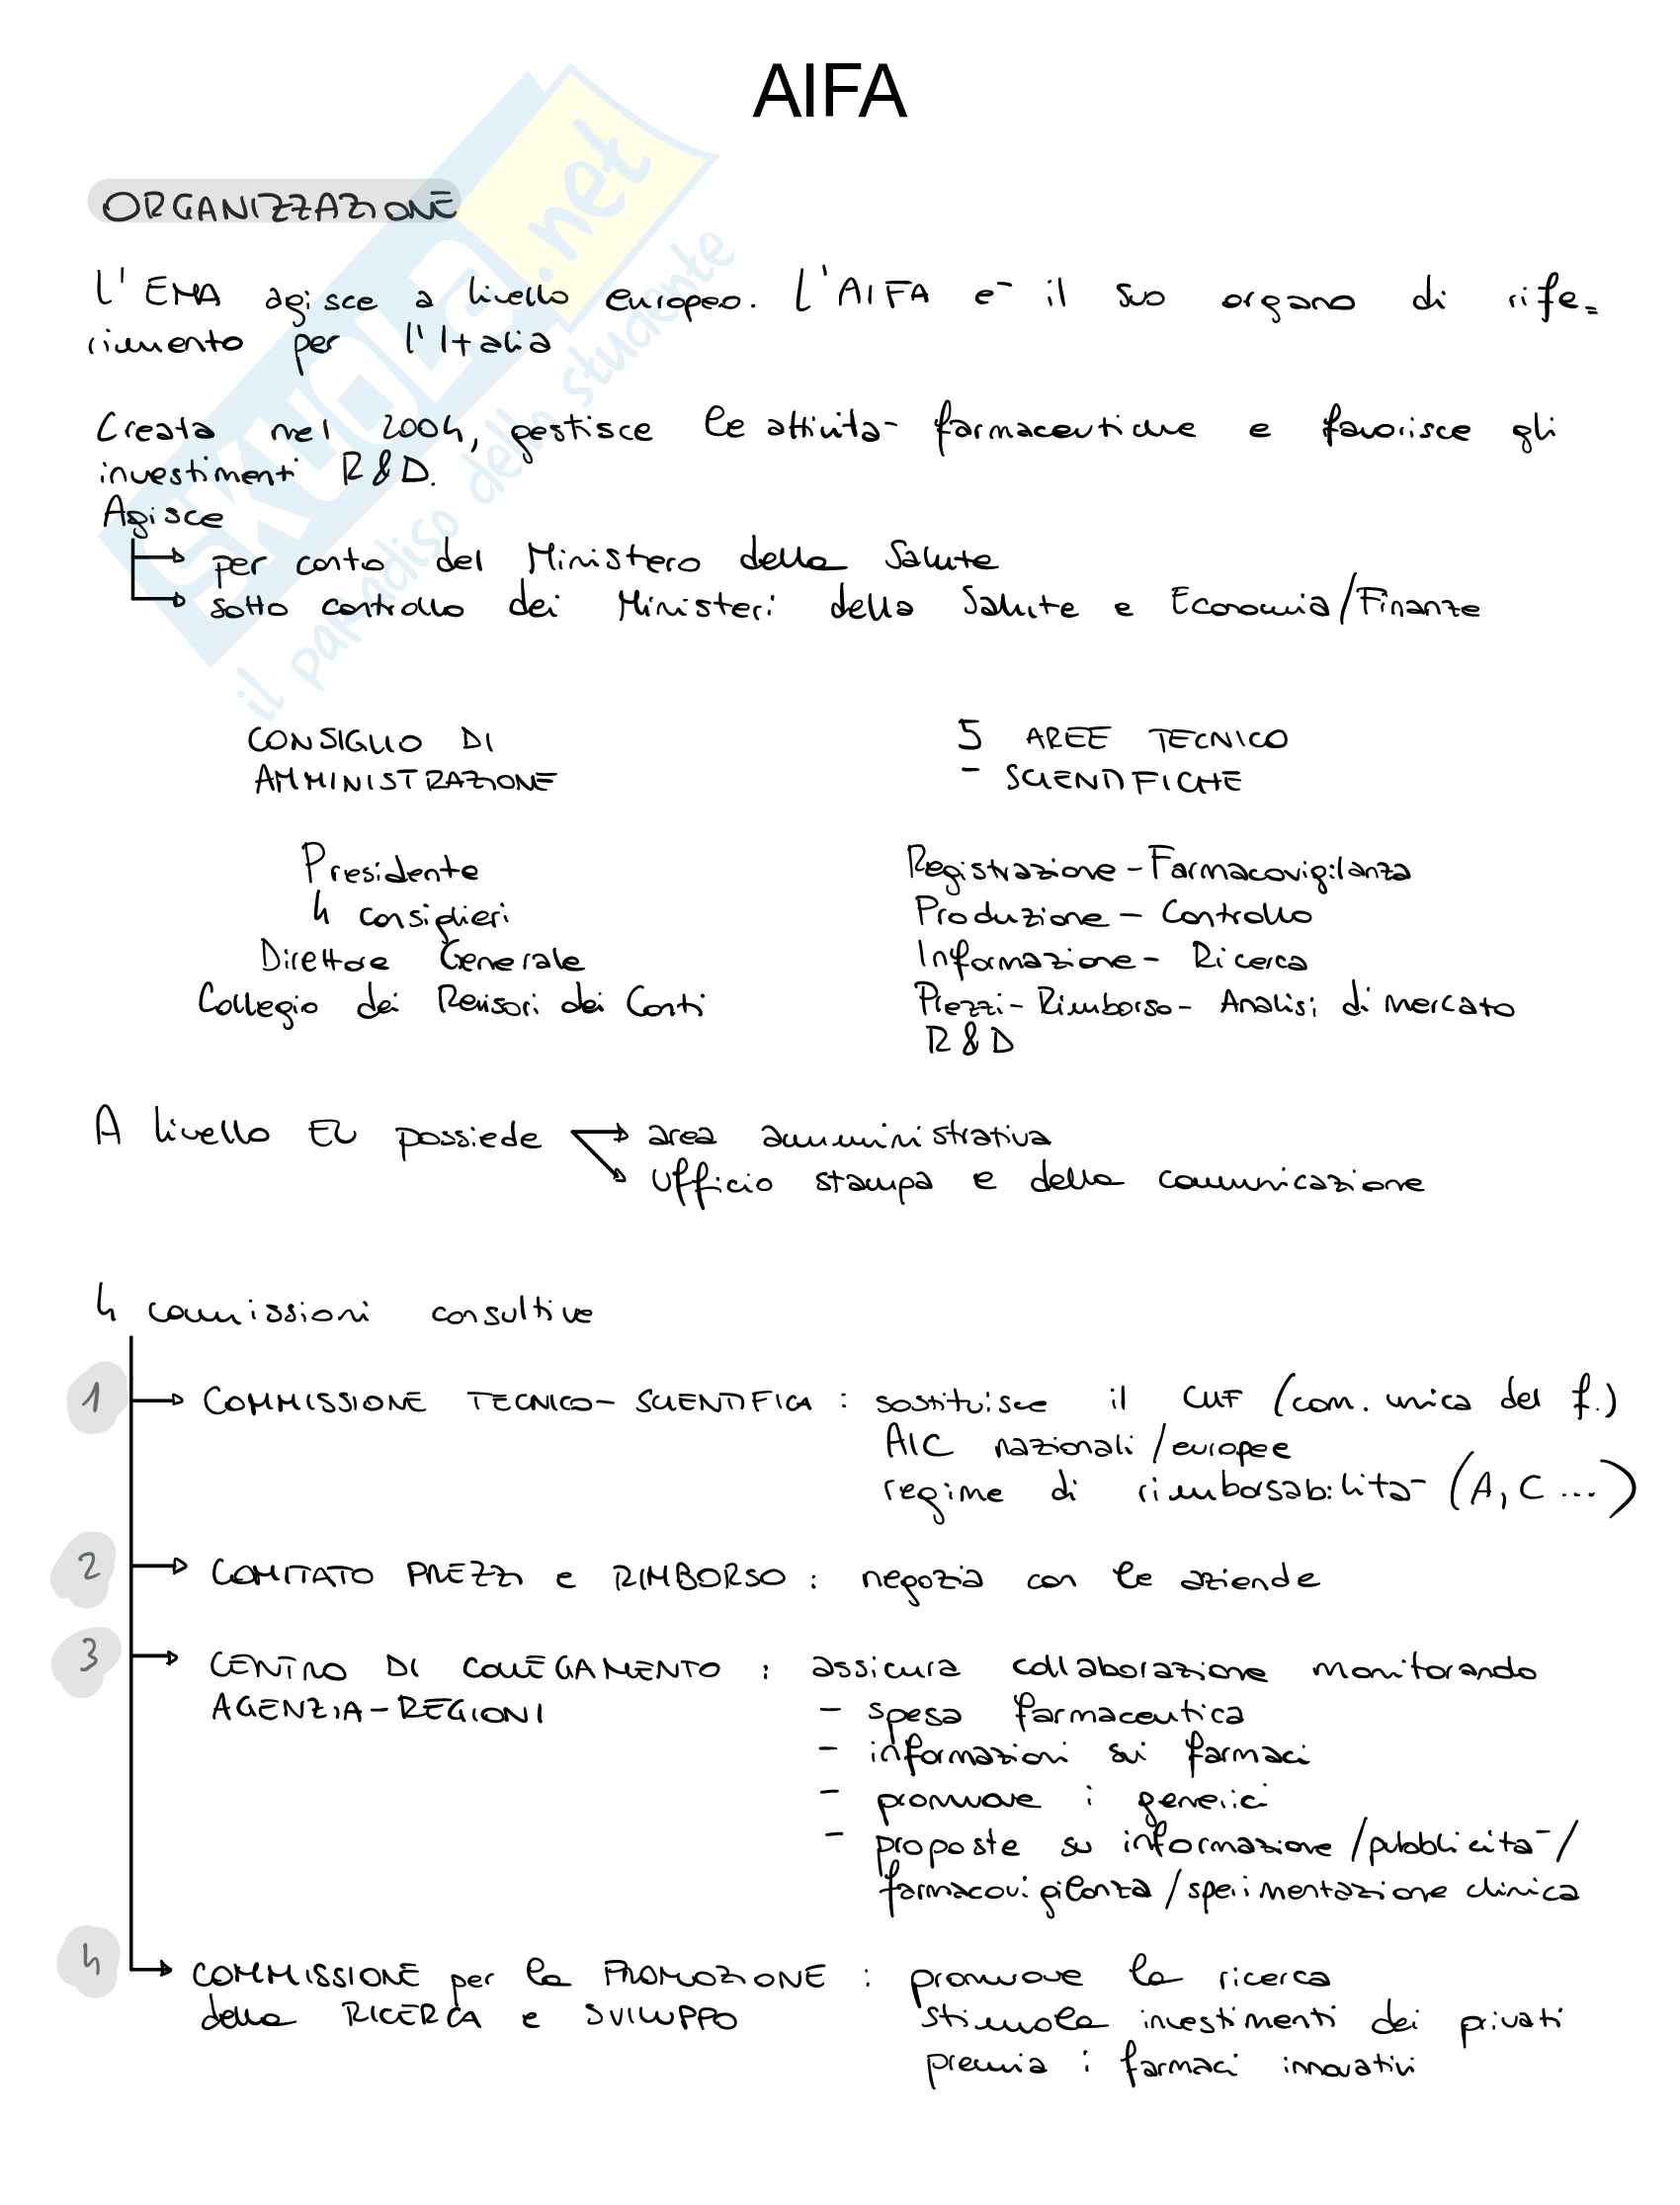 AIFA
ORGANIZZAZIONE
L'EMA agisce a livello europeo. L'AIFA e- il suo organo di rife=
rimento per l'Italia
Creata nel 2004, gestisce le attivita- farmaceutiche e favorisce gli
investimenti R&D.
Agisce
per conto del Ministero della Salute
sotto controllo dei Ministeri della Salute e Economia/Finanze
CONSIGLIO DI
AMMINISTRAZIONE
Presidente
4 consiglieri
Direttore Generale
Collegio dei Revisori dei Conti
5 AREE TECNICO
- SCIENTIFICHE
Registrazione - Farmacovigilanza
Produzione - Controllo
Informazione - Ricerca
Prezzi - Rimborso - Analisi di mercato
R&D
A livello EU possiede area amministrativa
Ufficio stampa e della comunicazione
4 comissioni consultive
1 COMMISSIONE TECNICO-SCIENTIFICA : sostituisce il CUF (com. unica del f.)
AIC nazionali/europee
regime di rimborsabilita- (A, C ...)
2 COMITATO PREZZI e RIMBORSO : negozia con le aziende
3 CENTRO DI COLLEGAMENTO : assicura collaborazione monitorando
AGENZIA-REGIONI - spesa farmaceutica
- informazioni sui farmaci
- promuove i generici
- proposte su informazione/pubblicita-/
farmacovigilanza/sperimentazione clinica
4 COMMISSIONE per la PROMOZIONE : promuove la ricerca
della RICERCA e SVILUPPO stimola investimenti dei privati
premia i farmaci innovativi
SKUOLA.net
il paradiso dello studente